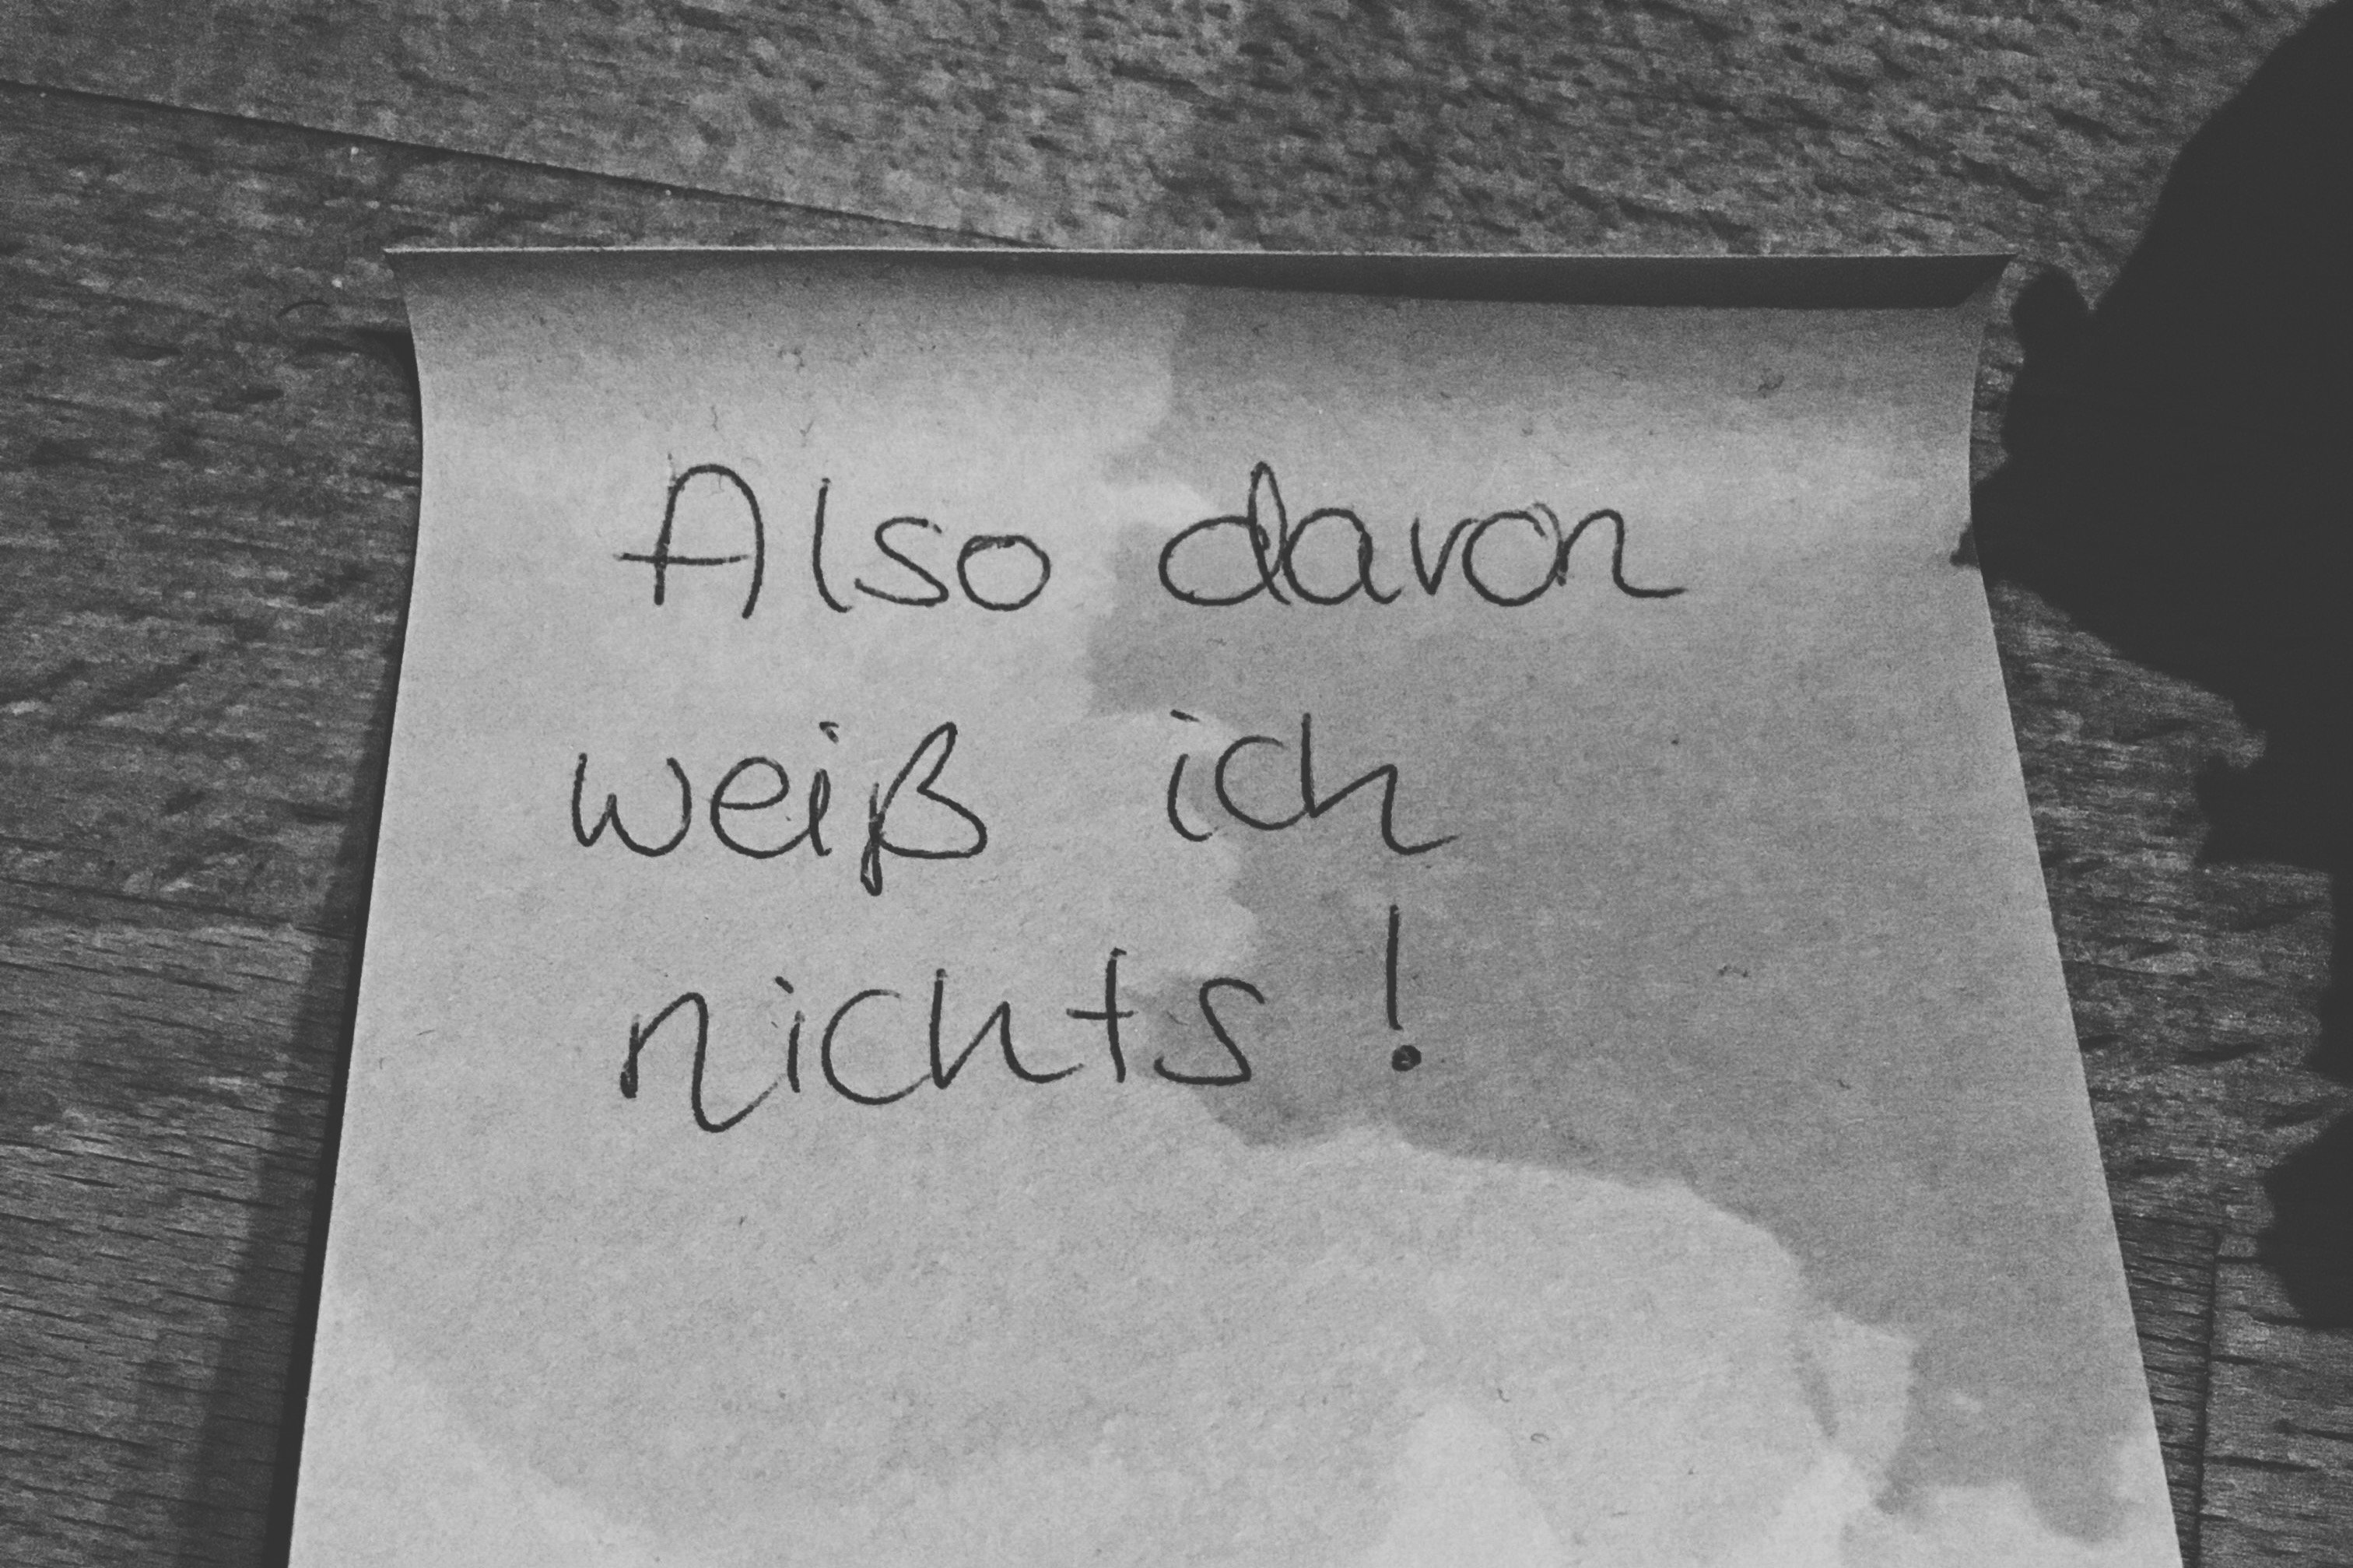 Also davon
weiß ich
nichts!